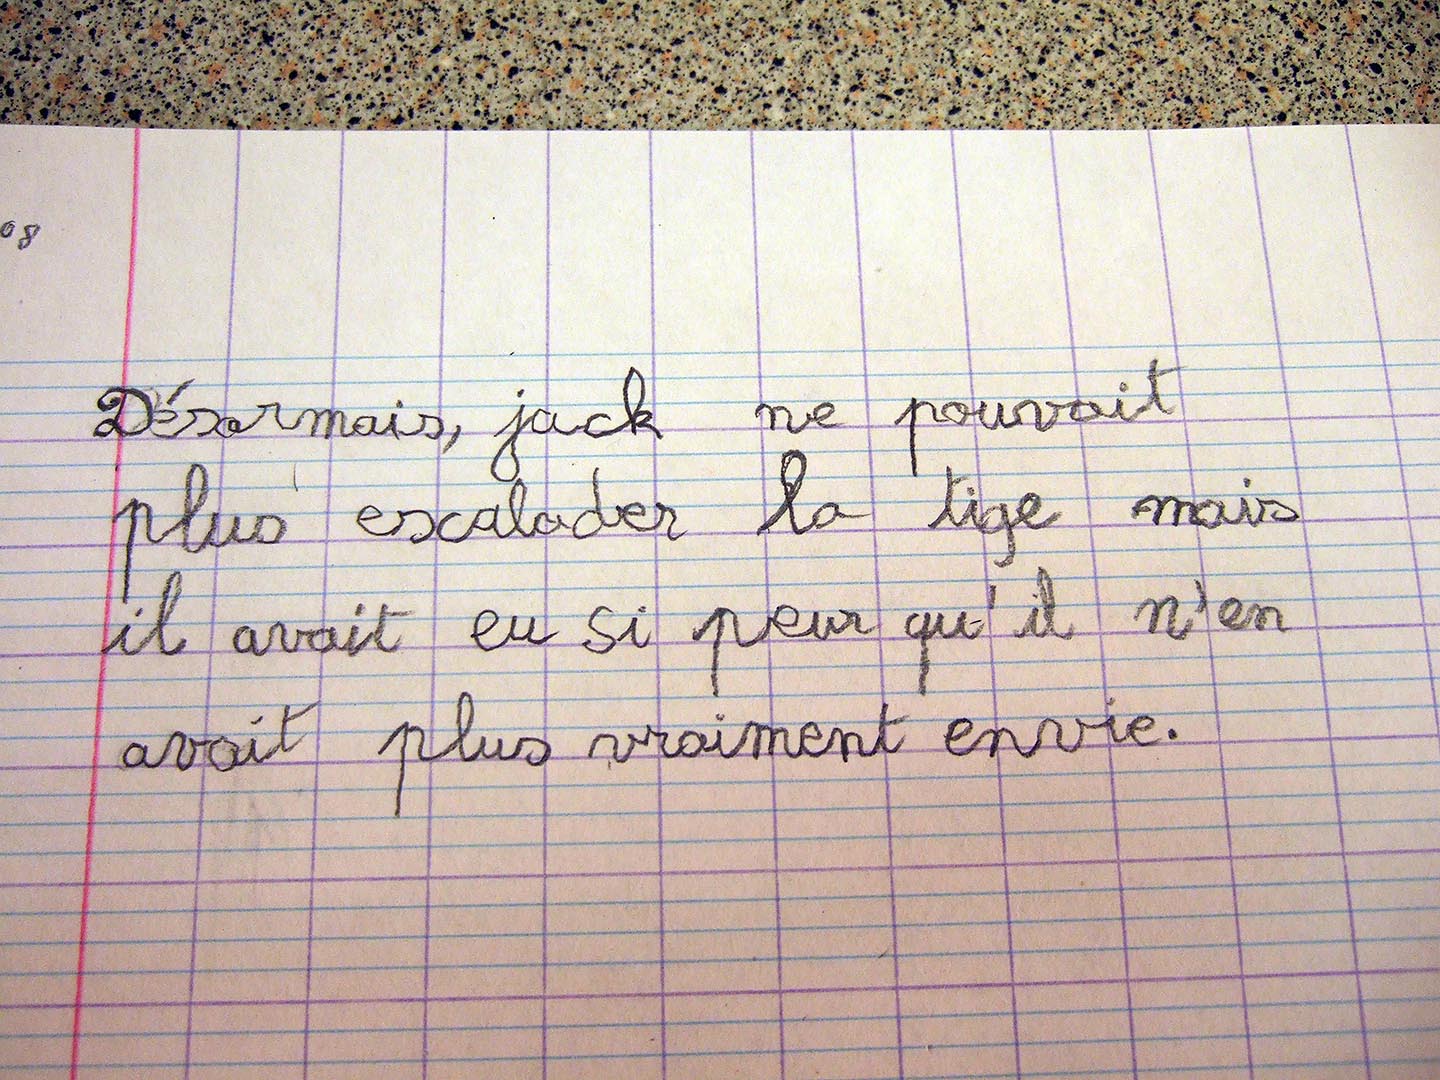 08
Désormais, jack ne pouvait
plus escalader la tige mais
il avait eu si peur qu'il n'en
avait plus vraiment envie.